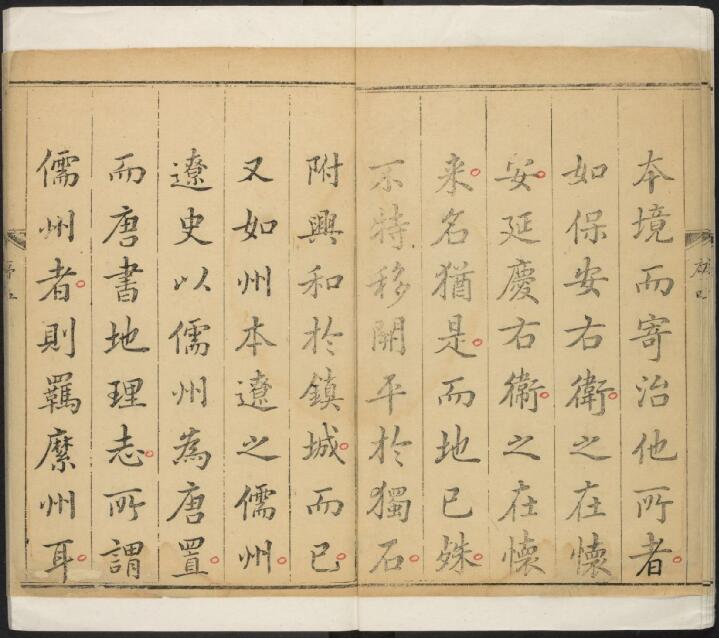 本境而寄治他所者
如保安右衛之在懷
安延慶右衛之在懷
来名猶是而地已殊
不特移開平於獨石
附興和於鎮城而已
又如州本遼之儒州
遼史以儒州為唐置
而唐書地理志所謂
儒州者則羈縻州耳